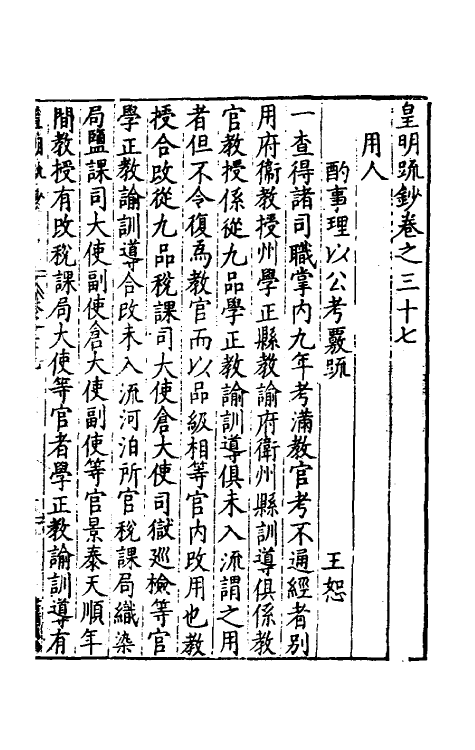 皇明疏鈔卷之三十七
用人
酌事理以公考覈疏 王恕
一查得諸司職掌內九年考滿教官考不通經者别
用府衞教授州學正縣教諭府衛州縣訓導俱係教
官教授係從九品學正教諭訓導俱未入流謂之用
者但不令復爲教官而以品級相等官內改用也教
授合改從九品稅課司大使倉大使司獄巡檢等官
學正教諭訓導合改未入流河泊所官稅課局織染
局鹽課司大使副使倉大使副使等官景泰天順年
間教授有改稅課局大使等官者學正教諭訓導有